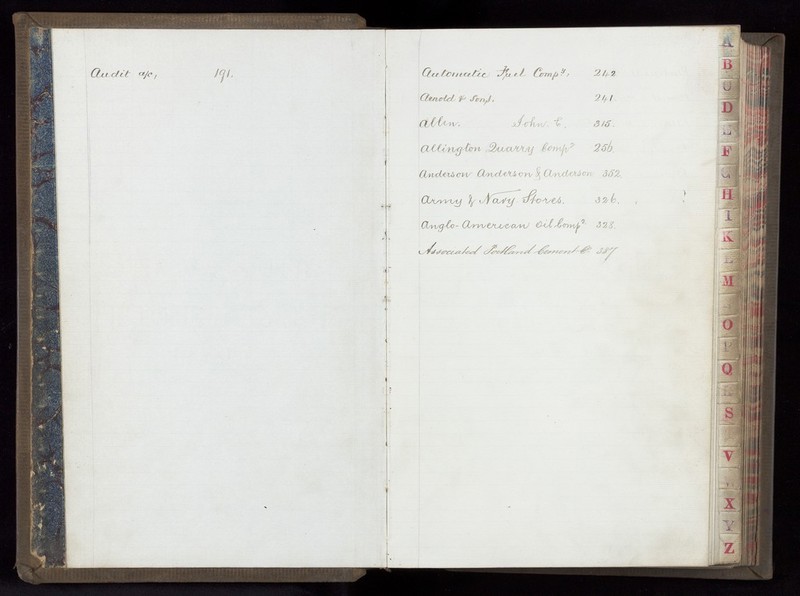 Audit a/c, 191.
Automatic Fuel Compy. 242
Arnold & Sons. 241
Allen. John C. 315.
Allington Quarry Compy 256
Anderson Anderson & Anderson 352
Army & Navy Stores. 326.
Anglo-American Oil Compy. 328.
Associated Portland Cement Co 387
A
B
C
D
E
F
G
H
I
K
L
M
O
P
Q
R
S
V
X
Y
Z